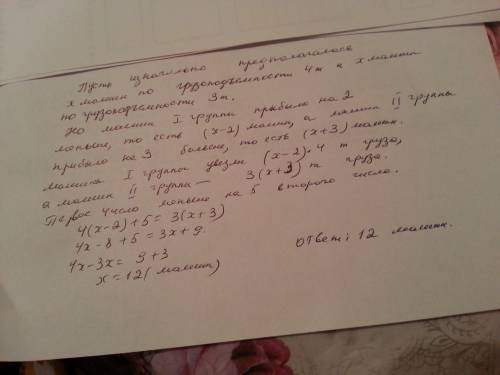 Пусть изначально предполагалось
х машин по грузоподъемности 4т и х машин
по грузоподъемности 3т.
Но машин I группы прибыло на 2
меньше, то есть (х-2) машин, а машин II группы
прибыло на 3 больше, то есть (х+3) машин.
Машины I группы увезли (х-2)·4 т груза,
а машины II группы — 3(х+3) т груза.
Первое число меньше на 5 второго числа.
4(х-2)+5=3(х+3)
4х-8+5=3х+9
4х-3х=9+3
х=12(машин)
Ответ: 12 машин.